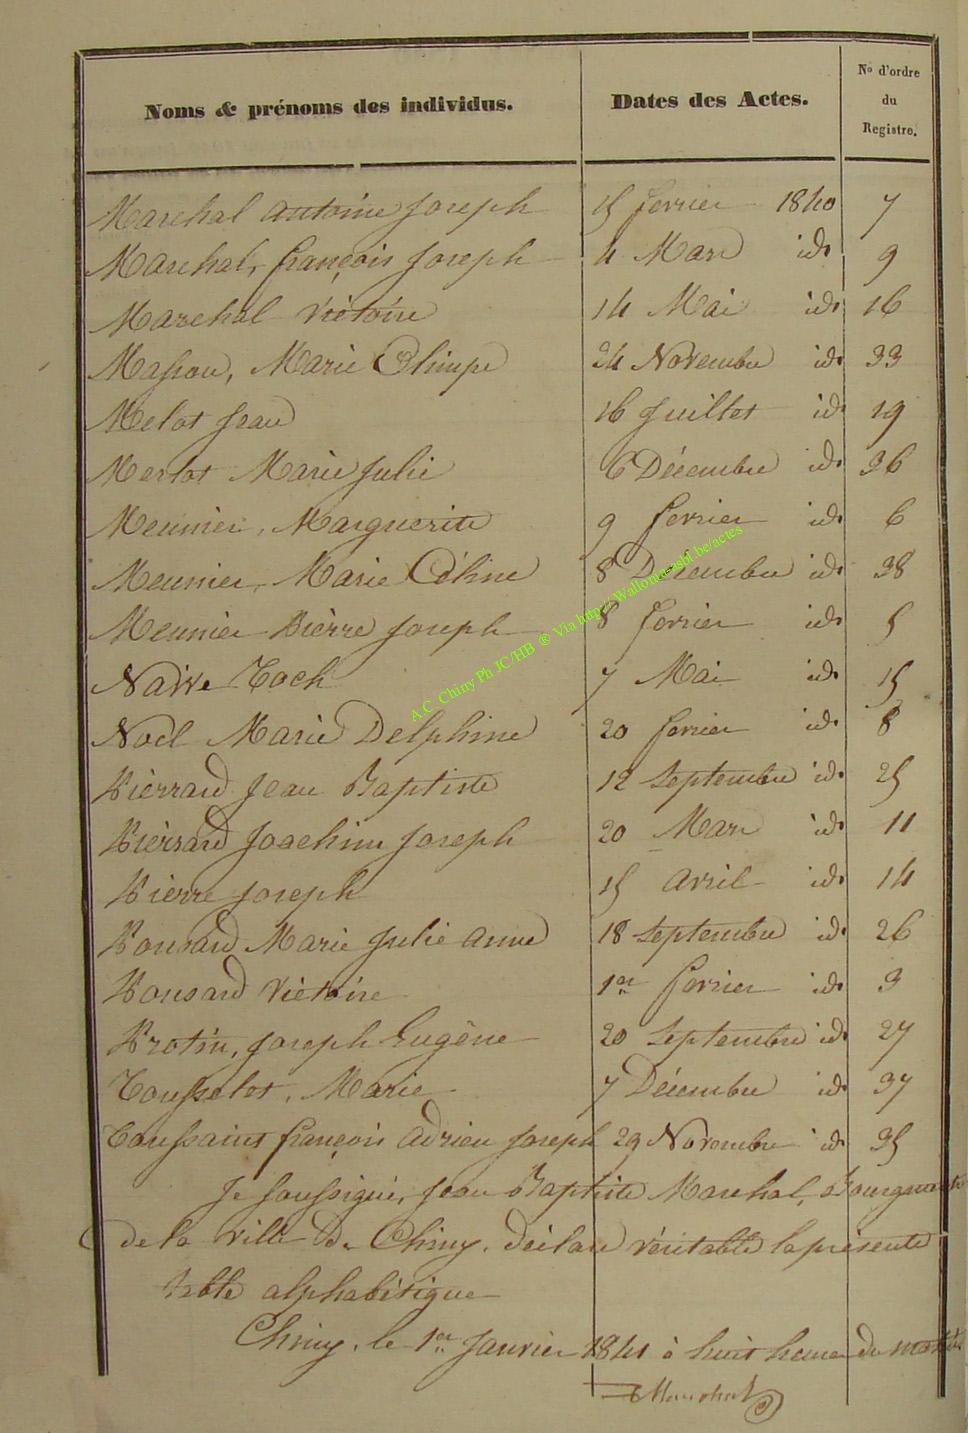 Noms & prénoms des individus. Dates des Actes. No d'ordre du Registre.
Marchal antoine Joseph 15 fevrier 1840 7
Marchal, françois Joseph 4 Mars id. 9
Marchal Victoire 14 Mai id. 16
Masson, Marie Olimpe 24 Novembre id. 33
Melot Jean 16 Juillet id. 19
Merlot Marie Julie 6 Décembre id. 36
Meunier, Marguerite 9 fevrier id. 6
Meunier, Marie Céline 8 Décembre id. 38
Meunier Pierre Joseph 8 fevrier id. 5
Naisse Toch 7 Mai id. 15
Noel Marie Delphine 20 fevrier id. 8
Pierrard Jean Baptiste 12 Septembre id. 25
Pierrard Joachim Joseph 20 Mars id. 11
Pierre Joseph 15 avril id. 14
Ponsard Marie Julie anne 18 Septembre id. 26
Ponsard Victoire 1er fevrier id. 3
Protin, Joseph Eugène 20 Septembre id. 27
Tousselot, Marie 7 Décembre id. 37
Toussaint françois adrien Joseph 29 Novembre id. 35
Je soussigné, Jean Baptiste Marchal, Bourgmestre
de la ville de Chiny, déclare véritable la présente
table alphabétique
Chiny, le 1er Janvier 1841 à huit heures du matin
Marchal
A C Chiny Ph JC/HB ® Via http:// Wallonia asbl be/actes